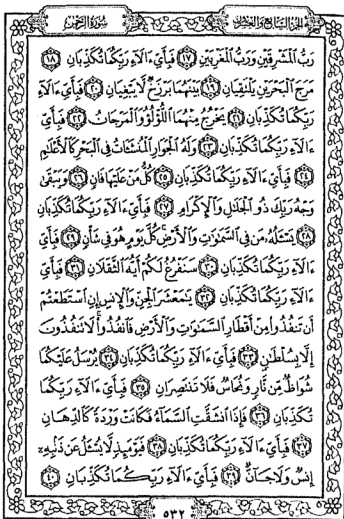 الجزء السابع والعشرون سورة الرحمن
رَبُّ الْمَشْرِقَيْنِ وَرَبُّ الْمَغْرِبَيْنِ ۝١٧ فَبِأَيِّ ءَالَآءِ رَبِّكُمَا تُكَذِّبَانِ ۝١٨
مَرَجَ الْبَحْرَيْنِ يَلْتَقِيَانِ ۝١٩ بَيْنَهُمَا بَرْزَخٌ لَّا يَبْغِيَانِ ۝٢٠ فَبِأَيِّ ءَالَآءِ
رَبِّكُمَا تُكَذِّبَانِ ۝٢١ يَخْرُجُ مِنْهُمَا اللُّؤْلُؤُ وَالْمَرْجَاتُ ۝٢٢ فَبِأَيِّ
ءَالَآءِ رَبِّكُمَا تُكَذِّبَانِ ۝٢٣ وَلَهُ الْجَوَارِ الْمُنشَـَٔاتُ فِي الْبَحْرِ كَالْأَعْلَٰمِ
۝٢٤ فَبِأَيِّ ءَالَآءِ رَبِّكُمَا تُكَذِّبَانِ ۝٢٥ كُلُّ مَنْ عَلَيْهَا فَانٍ ۝٢٦ وَيَبْقَىٰ
وَجْهُ رَبِّكَ ذُو الْجَلَٰلِ وَالْإِكْرَامِ ۝٢٧ فَبِأَيِّ ءَالَآءِ رَبِّكُمَا تُكَذِّبَانِ
۝٢٨ يَسْـَٔلُهُۥ مَن فِي السَّمَٰوَٰتِ وَالْأَرْضِ كُلَّ يَوْمٍ هُوَ فِي شَأْنٍ ۝٢٩ فَبِأَيِّ
ءَالَآءِ رَبِّكُمَا تُكَذِّبَانِ ۝٣٠ سَنَفْرُغُ لَكُمْ أَيُّهَ الثَّقَلَانِ ۝٣١ فَبِأَيِّ
ءَالَآءِ رَبِّكُمَا تُكَذِّبَانِ ۝٣٢ يَٰمَعْشَرَ الْجِنِّ وَالْإِنسِ إِنِ اسْتَطَعْتُمْ
أَن تَنفُذُوا مِنْ أَقْطَارِ السَّمَٰوَٰتِ وَالْأَرْضِ فَانفُذُوا لَا تَنفُذُونَ
إِلَّا بِسُلْطَٰنٍ ۝٣٣ فَبِأَيِّ ءَالَآءِ رَبِّكُمَا تُكَذِّبَانِ ۝٣٤ يُرْسَلُ عَلَيْكُمَا
شُوَاظٌ مِّن نَّارٍ وَنُحَاسٌ فَلَا تَنتَصِرَانِ ۝٣٥ فَبِأَيِّ ءَالَآءِ رَبِّكُمَا
تُكَذِّبَانِ ۝٣٦ فَإِذَا انشَقَّتِ السَّمَآءُ فَكَانَتْ وَرْدَةً كَالدِّهَانِ
۝٣٧ فَبِأَيِّ ءَالَآءِ رَبِّكُمَا تُكَذِّبَانِ ۝٣٨ فَيَوْمَئِذٍ لَّا يُسْـَٔلُ عَن ذَنبِهِۦٓ
إِنسٌ وَلَا جَآنٌّ ۝٣٩ فَبِأَيِّ ءَالَآءِ رَبِّكُمَا تُكَذِّبَانِ ۝٤٠
٥٣٢